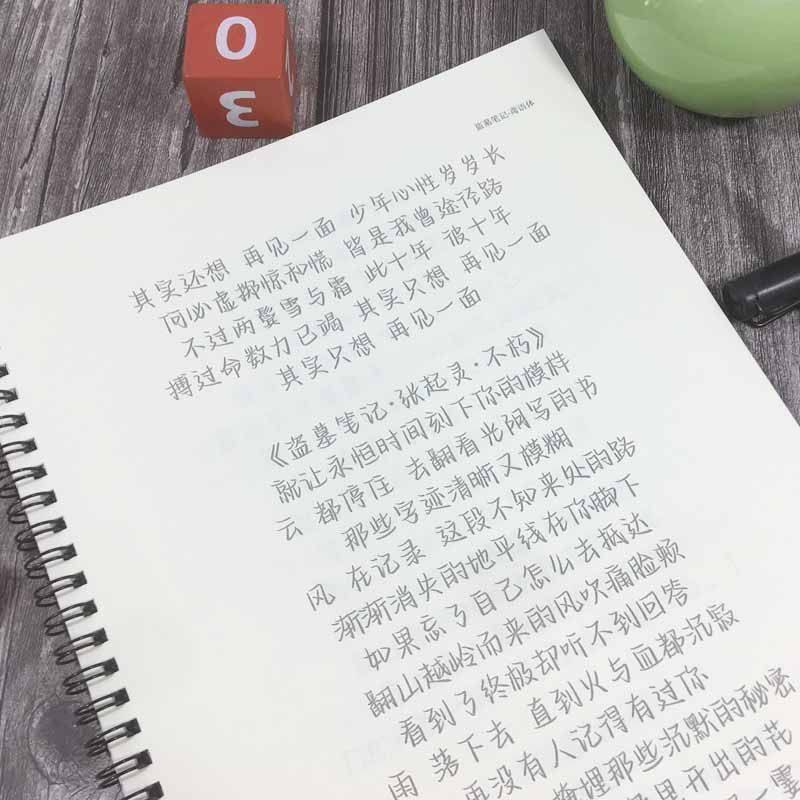 0
3
盗墓笔记·毒语体
其实还想 再见一面 少年心性岁岁长
何必虚掷惊和慌 皆是我曾途径路
不过两鬓雪与霜 此十年 彼十年
搏过命数力已竭 其实只想 再见一面
其实只想 再见一面
《盗墓笔记·张起灵·不朽》
就让永恒时间刻下你的模样
云 都停住 去翻看光阴写的书
那些字迹清晰又模糊
风 在记录 这段不知来处的路
渐渐消失的地平线在你脚下
如果忘了自己怎么去抵达
翻山越岭而来的风吹痛脸颊
看到了终极却听不到回答
雨 落下去 直到火与血都沉寂
再没有人记得有过你
掩埋那些沉默的秘密
里开出的花
一